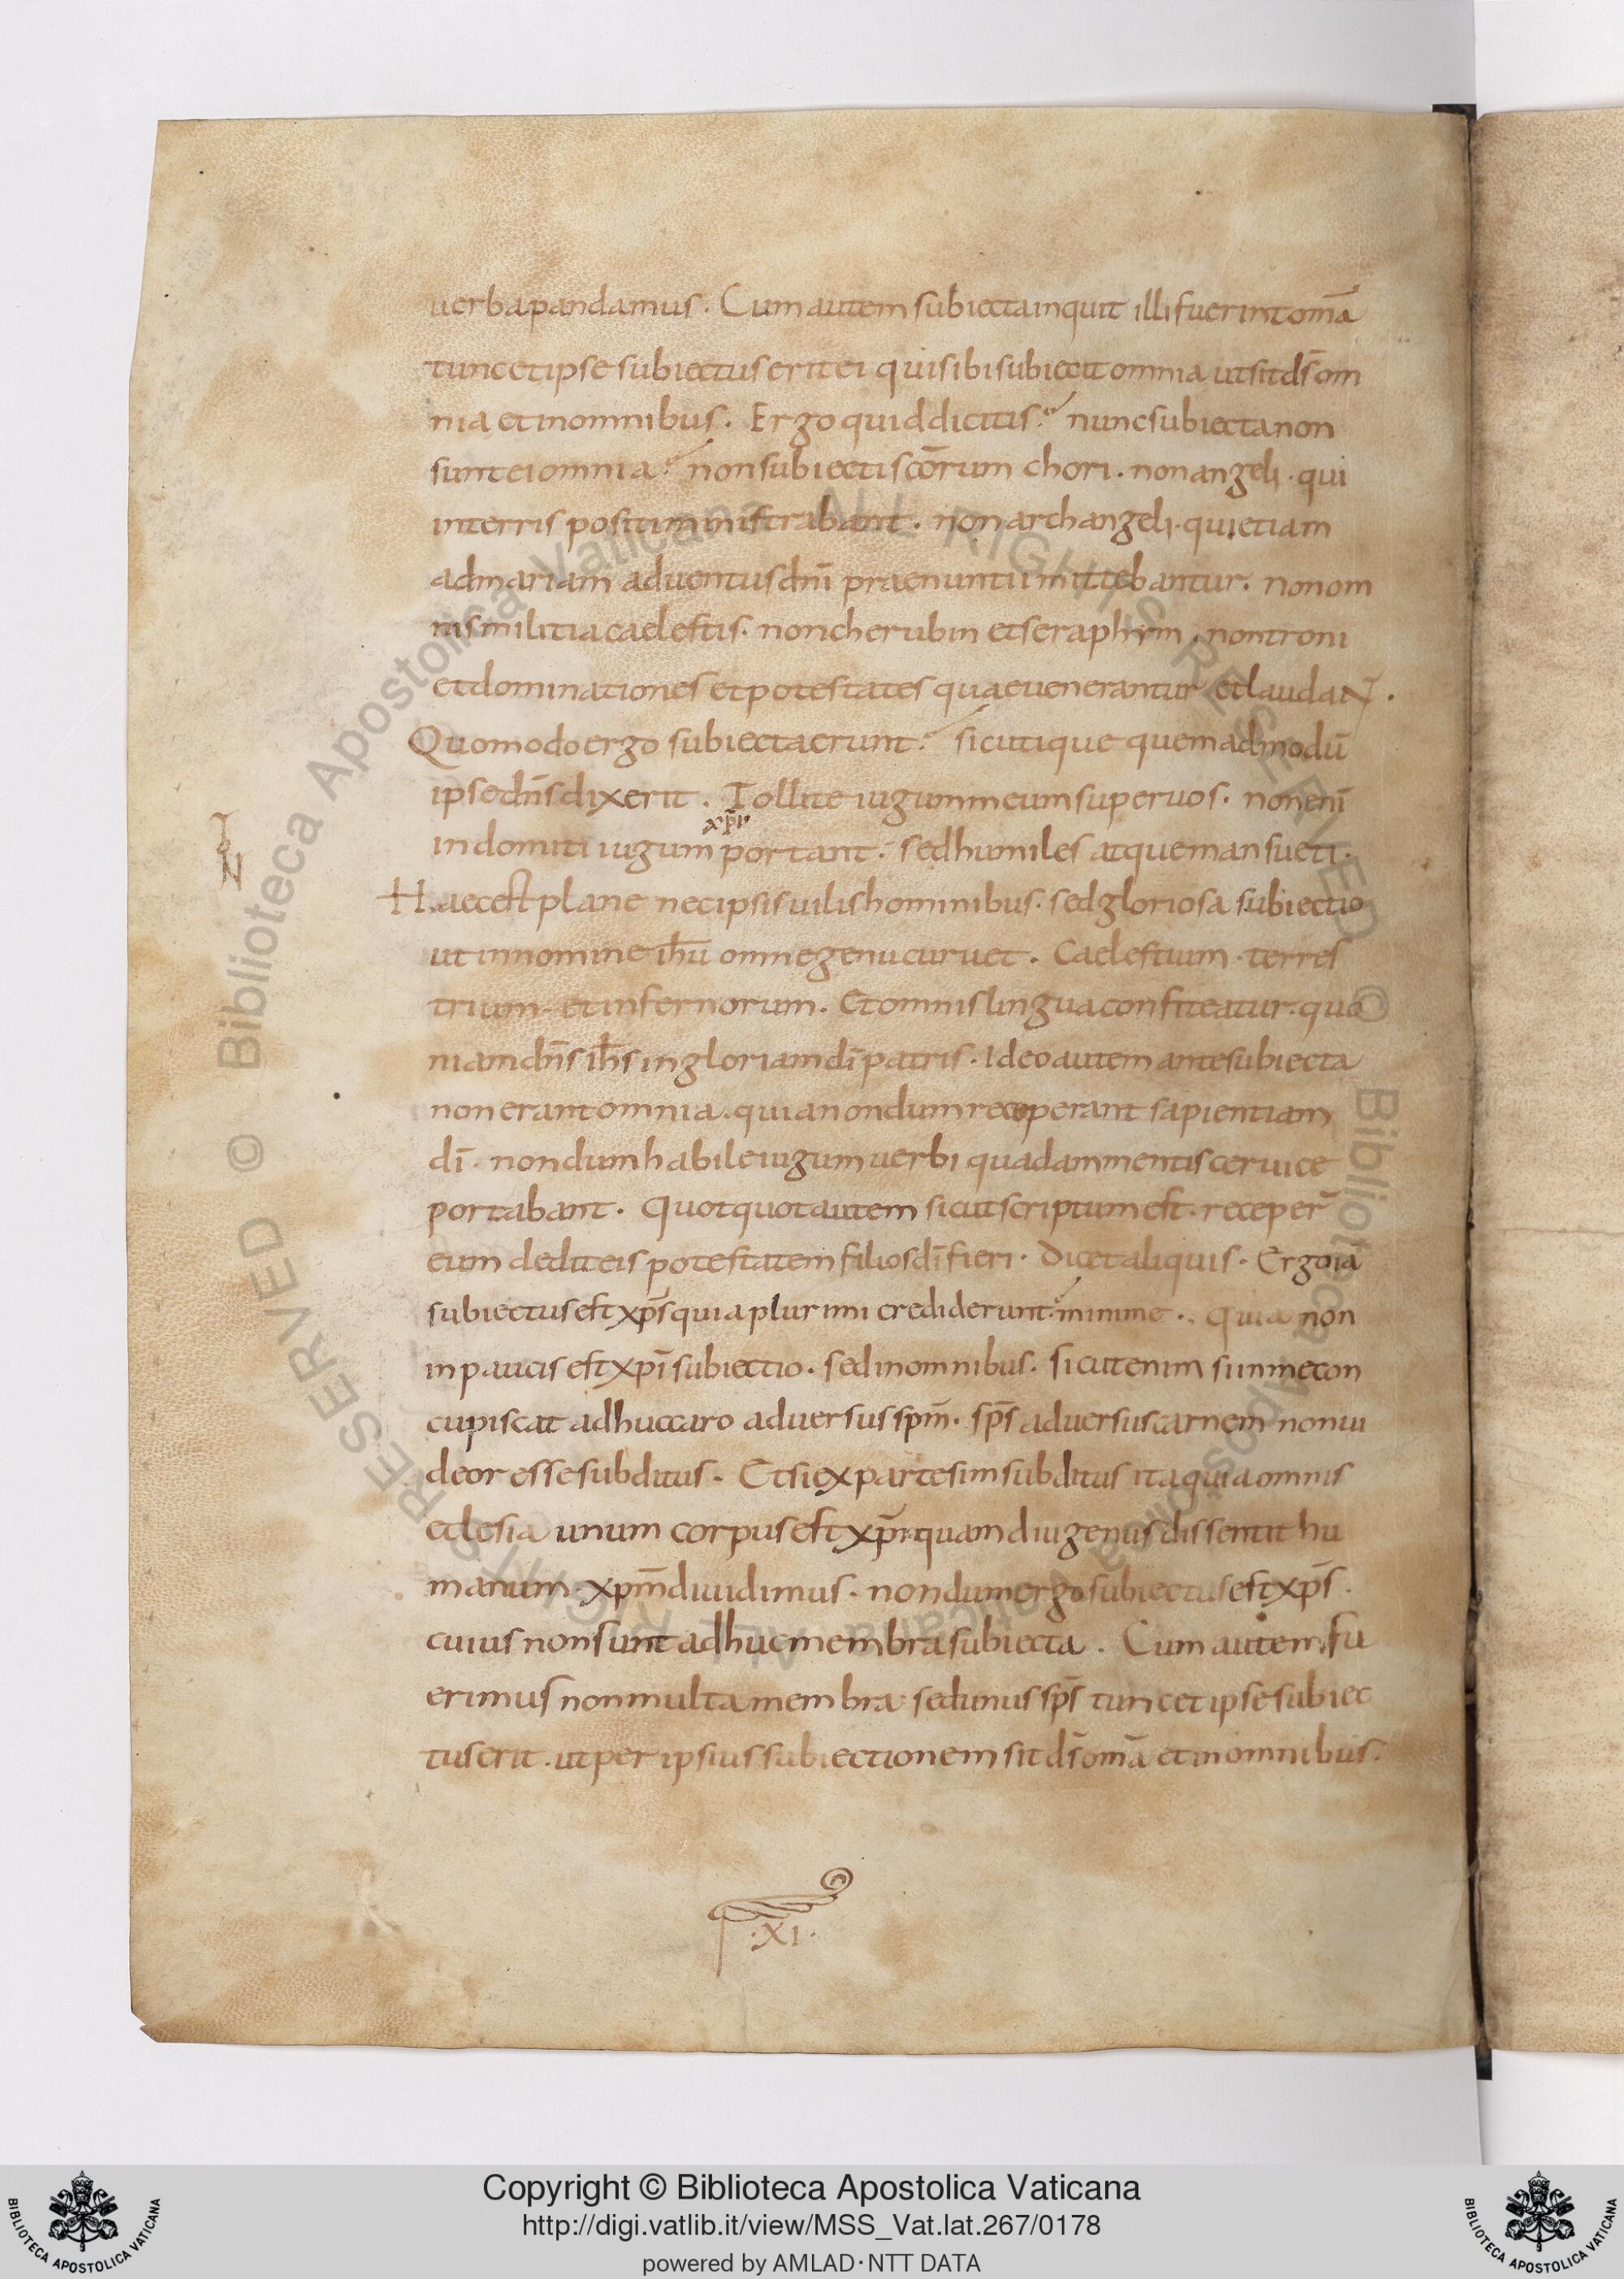 uerba pandamus. Cum autem subiecta inquit illi fuerint om̄a
tunc et ipse subiectus erit ei qui sibi subiecit omnia ut sit d̄s om
nia et in omnibus. Ergo quid dicitis? nunc subiecta non
sunt ei omnia? non subiecti sc̄orum chori. non angeli. qui
in terris positi ministrabant. non archangeli. qui etiam
ad mariam aduentus dn̄i praenuntii mittebantur. non om
nis militia caelestis. non cherubin et seraphym. non troni
et dominationes et potestates quae uenerantur et laudaNT.
Quomodo ergo subiecta erunt? sicut ique quemadmodū
ipse dn̄s dixerit. Tollite iugum meum super uos. non enī
xp̄i
indomiti iugum portant. sed humiles atque mansueti.
Haec est plane nec ipsis uilis hominibus. sed gloriosa subiectio
ut in nomine ih̄u omne genu curuet. Caelestium. terres
trium. et infernorum. Et omnis lingua confiteatur. quo
niam dn̄s ih̄s in gloriam dī patris. Ideo autem ante subiecta
non erant omnia. quia nondum receperant sapientiam
dī. nondum habile iugum uerbi quadam mentis ceruice
portabant. Quotquot autem sicut scriptum est. receper̄
eum dedit eis potestatem filios dī fieri. Dicet aliquis. Ergo iā
subiectus est xp̄s quia plurimi crediderunt? minime. Quia non
in paucis est xp̄i subiectio. sed in omnibus. sicut enim si in me con
cupiscat adhuc caro aduersus sp̄m. sp̄s aduersus carnem non ui
deor esse subditus. Etsi ex parte sim subditus ita quia omnis
eclesia unum corpus est xp̄i quamdiu genus dissentit hu
manum. xp̄m diuidimus. nondum ergo subiectus est xp̄s.
cuius non sunt adhuc membra subiecta. Cum autem fu
erimus non multa membra. sed unus sp̄s tunc et ipse subiec
tus erit. ut per ipsius subiectionem sit d̄s om̄a et in omnibus.
.XI.
Copyright © Biblioteca Apostolica Vaticana
http://digi.vatlib.it/view/MSS_Vat.lat.267/0178
powered by AMLAD·NTT DATA
BIBLIOTECA APOSTOLICA VATICANA
BIBLIOTECA APOSTOLICA VATICANA